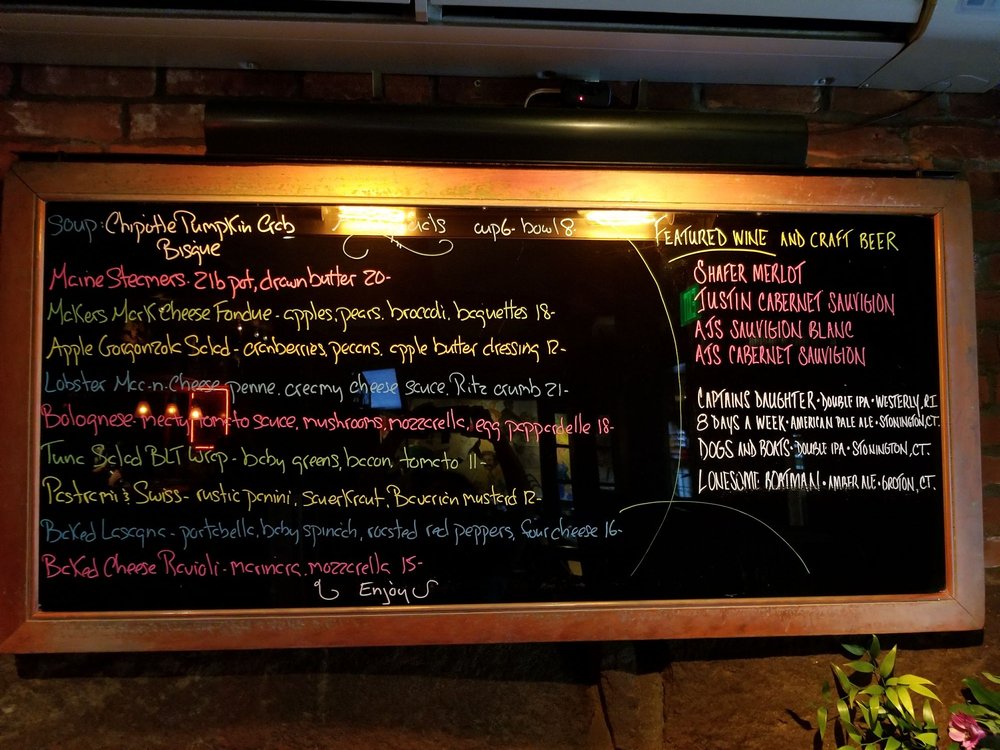 Soup: Chipotle Pumpkin Crab cup 6- bowl 8-
Bisque
Maine Steamers- 2lb pot, drawn butter 20-
Makers Mark Cheese Fondue - apples, pears, broccoli, baguettes 18-
Apple Gorgonzola Salad - cranberries, pecans, apple butter dressing 12-
Lobster Mac-n-Cheese penne, creamy cheese sauce, Ritz crumb 21-
Bolognese- meaty tomato sauce, mushrooms, mozzarella, egg pappardelle 18-
Tuna Salad BLT Wrap - baby greens, bacon, tomato 11-
Pastrami & Swiss- rustic panini, sauerkraut, Bavarian mustard 12-
Baked Lasagna - portabella, baby spinach, roasted red peppers, four cheese 16-
Baked Cheese Ravioli - marinara, mozzarella 15-
Enjoy
FEATURED WINE AND CRAFT BEER
SHAFER MERLOT
JUSTIN CABERNET SAUVIGION
AJS SAUVIGION BLANC
AJS CABERNET SAUVIGION
CAPTAINS DAUGHTER • DOUBLE IPA • WESTERLY, RI
8 DAYS A WEEK • AMERICAN PALE ALE • STONINGTON, CT.
DOGS AND BOATS • DOUBLE IPA • STONINGTON, CT.
LONESOME BOATMAN • AMBER ALE • GROTON, CT.